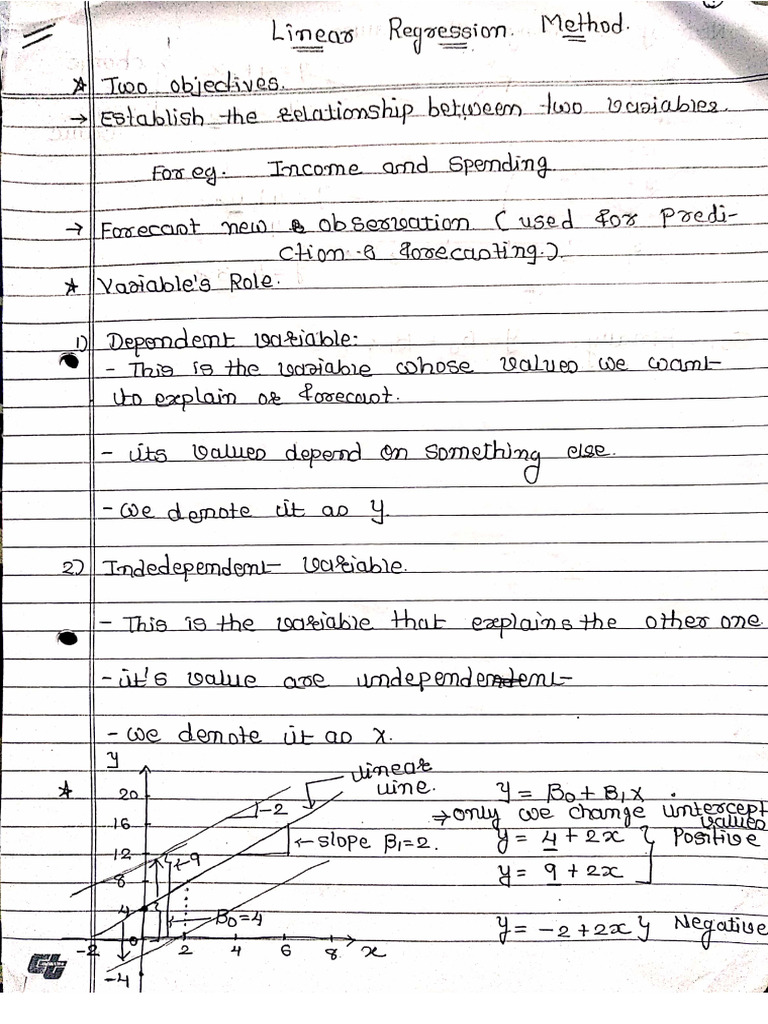 Linear Regression Method.
* Two objectives.
→ Establish the relationship between two variables.
For eg. Income and Spending
→ Forecast new & observation (used for Predi-
ction & forecasting.)
* Variable's Role.
1) Dependent variable:
- This is the variable whose values we want
to explain or forecast.
- its values depend on something else.
- we denote it as y.
2) Indedependent variable.
- This is the variable that explains the other one
- it's value are independent
- we denote it as x.
*
y
20
16
12
8
4
0
-2
-4
2
4
6
8
x
linear
line.
-2
←slope β1=2.
←9
β0=4
y = β0 + β1x.
→ only we change intercept
values
y = 4 + 2x } Positive
y = 9 + 2x
y = -2 + 2x } Negative